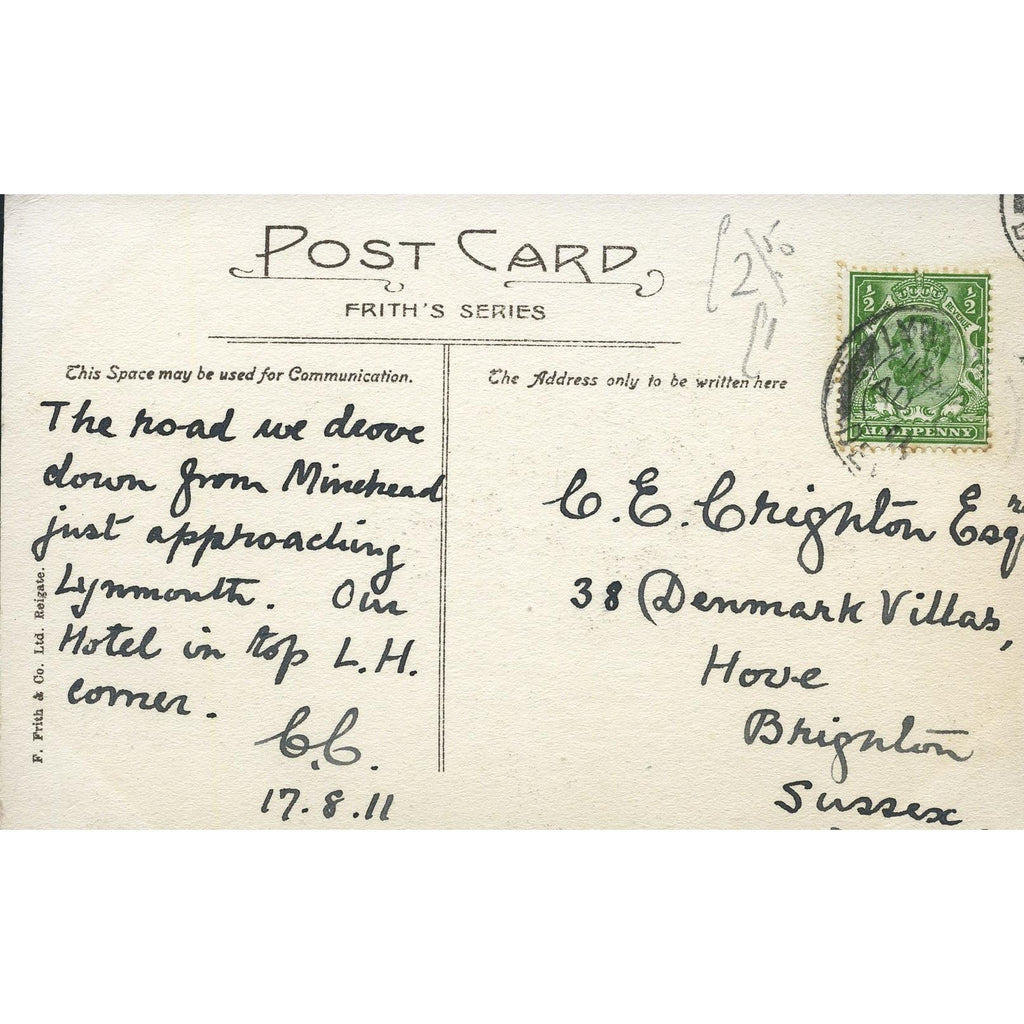 POST CARD
FRITH'S SERIES
This Space may be used for Communication.
The Address only to be written here
The road we drove
down from Minehead
just approaching
Lynmouth. Our
Hotel in top L.H.
corner.
C.C.
17.8.11
F. Frith & Co. Ltd. Reigate.
2/50
½ ½
POSTAGE REVENUE
HALFPENNY
LYN
C. E. Crighton Esqre
38 Denmark Villas,
Hove
Brighton
Sussex